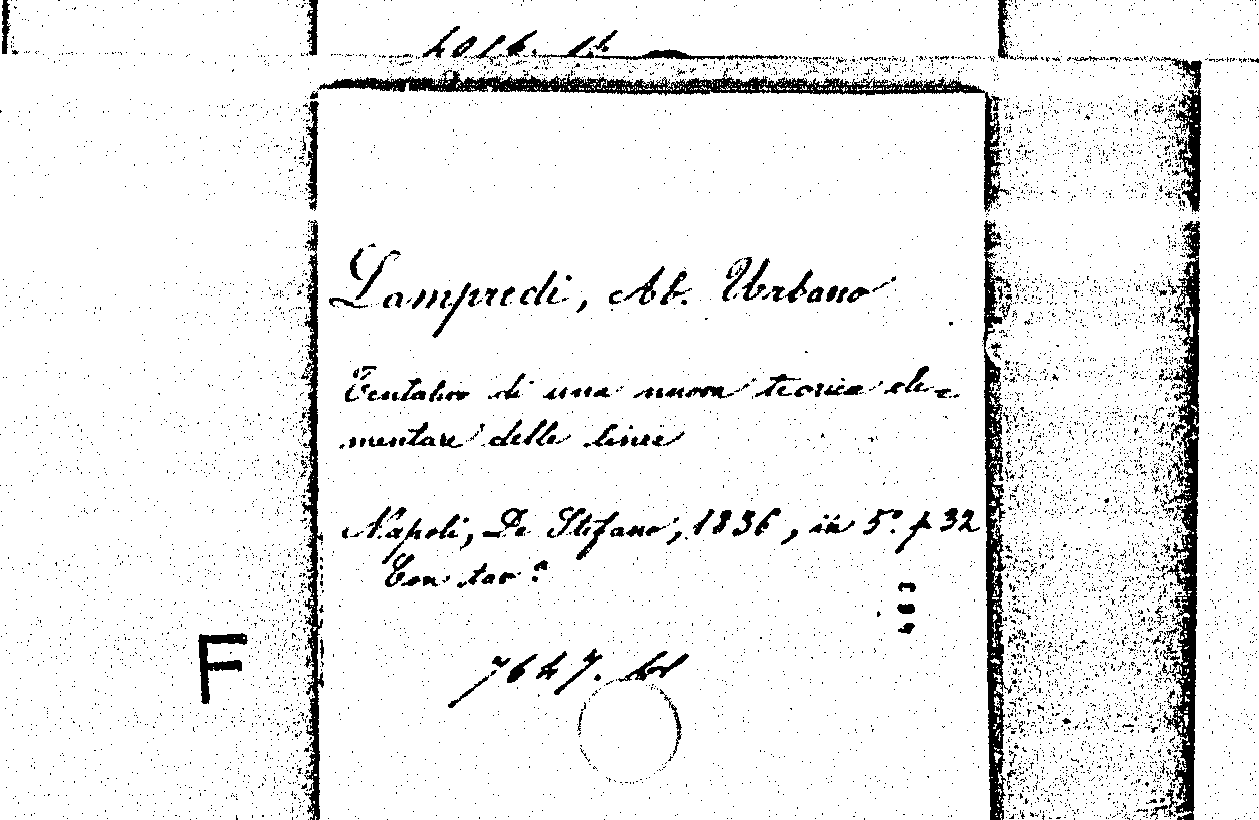 Lampredi, Ab. Urbano
Tentativo di una nuova teorica ele-
mentare delle linee
Napoli, De Stefano, 1836, in 5º. p 32
Con tav ª
F
7647.